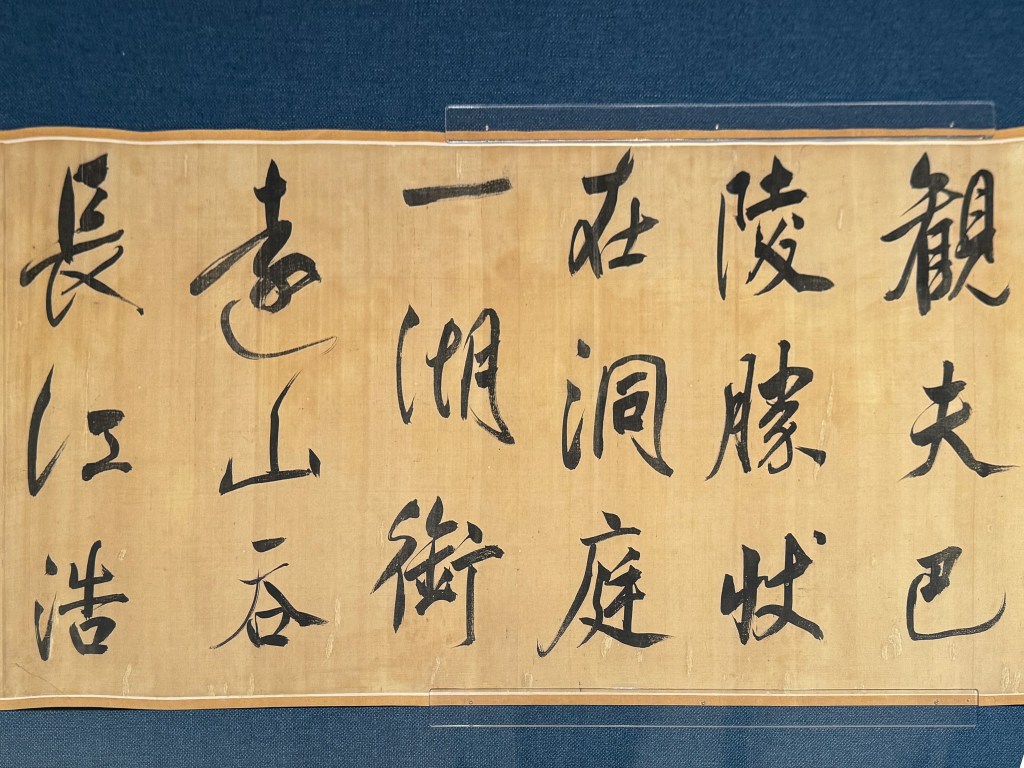 觀夫巴
陵勝狀
在洞庭
一湖銜
遠山吞
長江浩